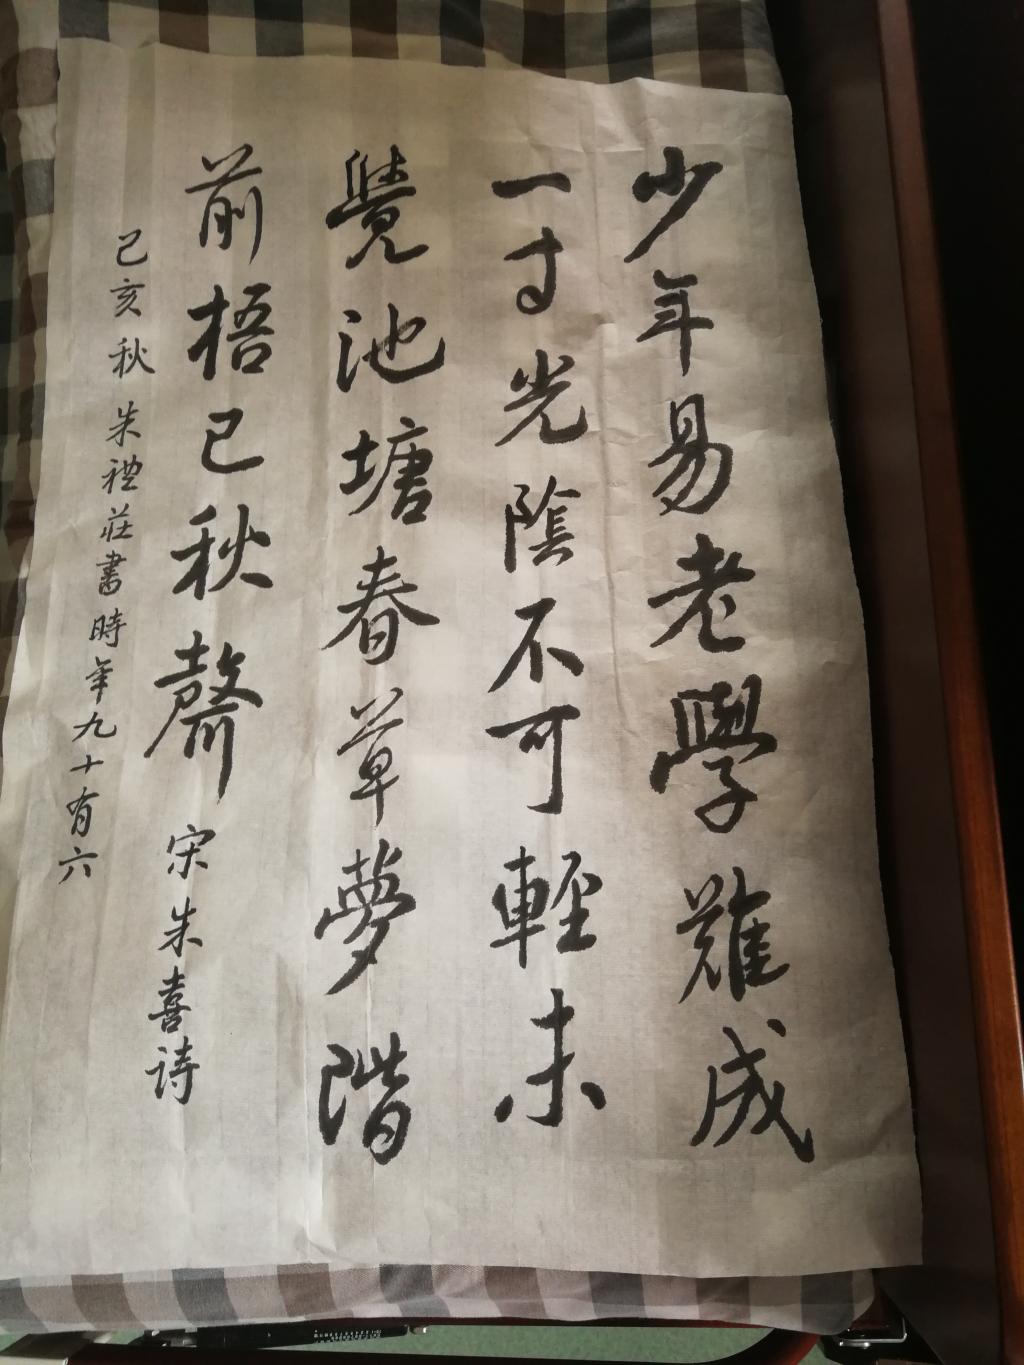 少年易老學難成
一寸光陰不可輕未
覺池塘春草夢階
前梧已秋聲 宋朱喜诗
己亥秋朱禮莊書時年九十有六